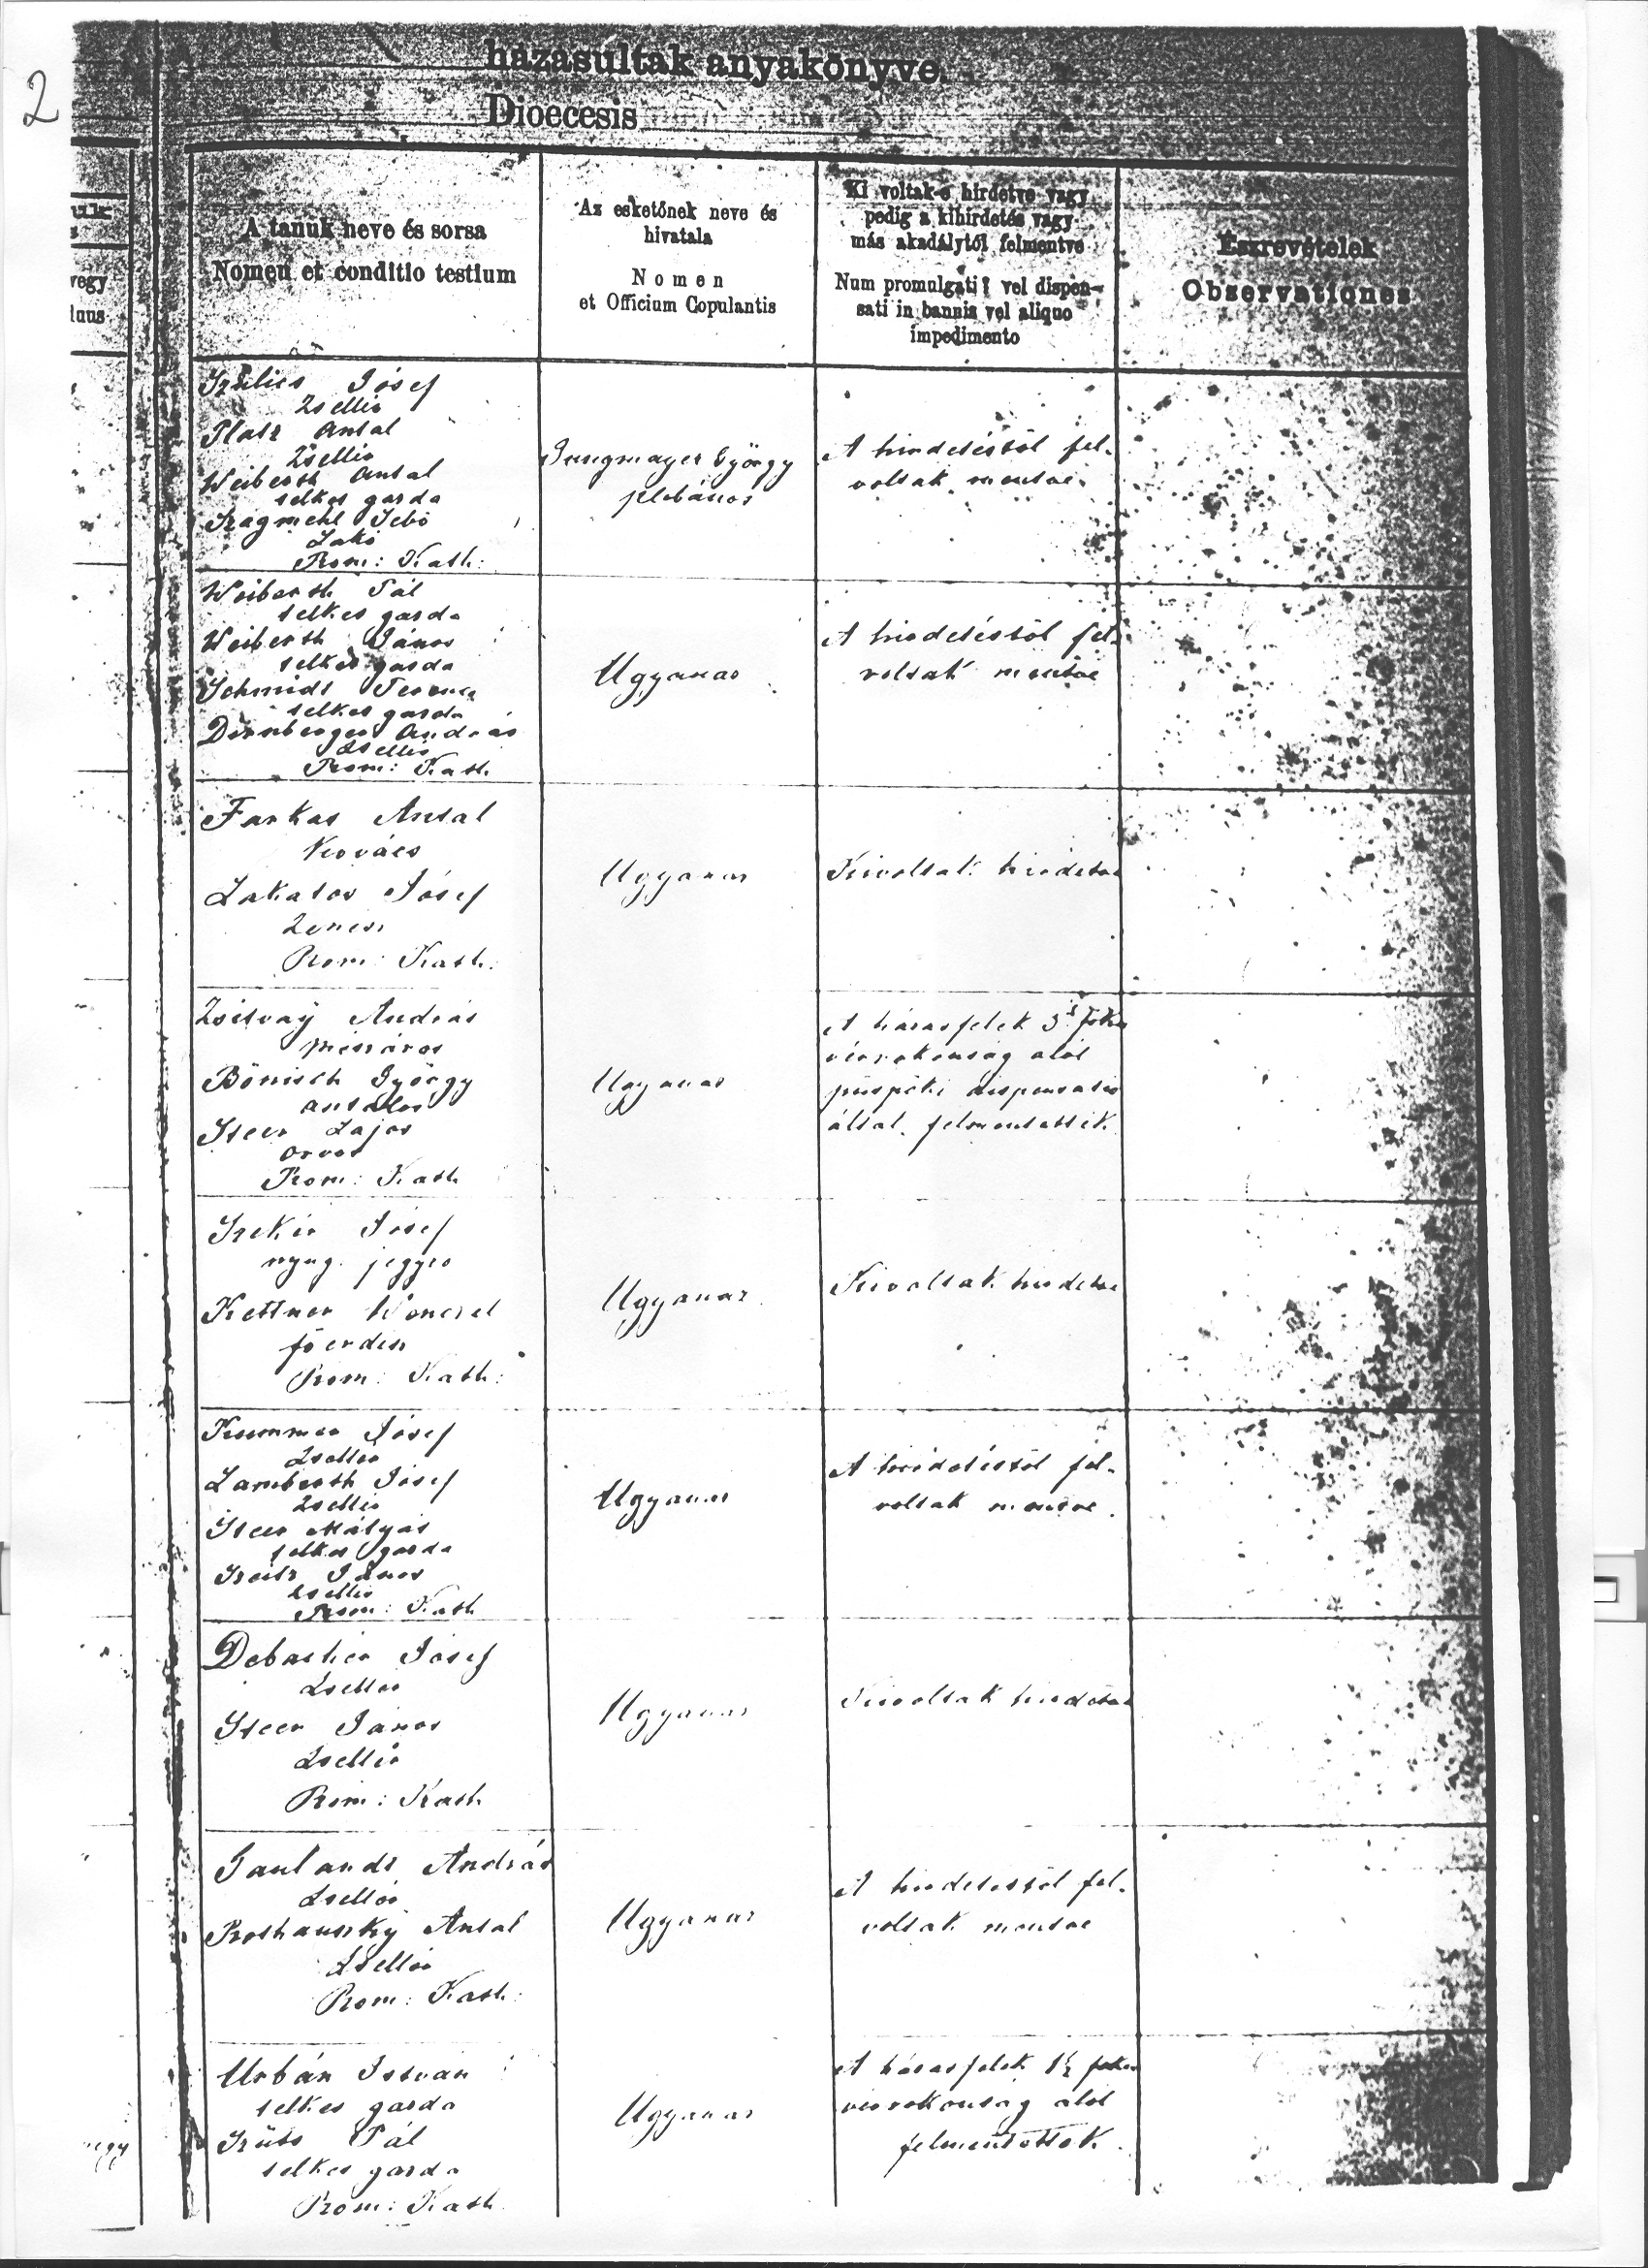 2
házasultak anyakönyve.
Dioecesis
A tanúk neve és sorsa
Nomen et conditio testium
Az esketőnek neve és
hivatala
Nomen
et Officium Copulantis
Ki voltak-e hirdetve vagy
pedig a kihirdetés vagy
más akadálytól felmentve
Num promulgati? vel dispen-
sati in bannis vel aliquo
impedimento
Észrevételek
Observationes
vegy
József
Zsellér
Platz Antal
Zsellér
Weiberth Antal
telkes gazda
Lakó
Rom: Kath:
Jungmayer György
plébános
A hirdetéstől fel-
voltak mentve.
Weiberth Pál
telkes gazda
Weiberth János
telkes gazda
Schmidt Ferencz
telkes gazda
Dirnberger András
Zsellér
Rom: Kath.
Ugyanaz
A hirdetéstől fel-
voltak mentve
Farkas Antal
Kovács
Lakatos József
Zenész
Rom: Kath:
Ugyanaz
Kivoltak hirdetve
Zsitvaÿ András
mészáros
Bönisch György
asztalos
Steer Lajos
orvos
Rom: Kath.
Ugyanaz
A házasfelek 3
vérrokonság alól
püspöki dispensatio
által felmentettek.
Szekér József
nyug. jegyző
Kettner Wenczel
főerdész
Rom: Kath:
Ugyanaz
Kivoltak hirdetve
Kummer József
Zsellér
Lamberth József
Zsellér
Steer Mátyás
telkes gazda
János
Zsellér
Rom: Kath
Ugyanaz
A hirdetéstől fel-
voltak mentve.
József
Zsellér
Steer János
Zsellér
Rom: Kath.
Ugyanaz
Kivoltak hirdetve
András
Zsellér
Rothanszky Antal
Zsellér
Rom: Kath:
Ugyanaz
A hirdetéstől fel-
voltak mentve
Urbán István
telkes gazda
Pál
telkes gazda
Rom: Kath.
Ugyanaz
A házasfelek
vérrokonság alól
felmentettek.